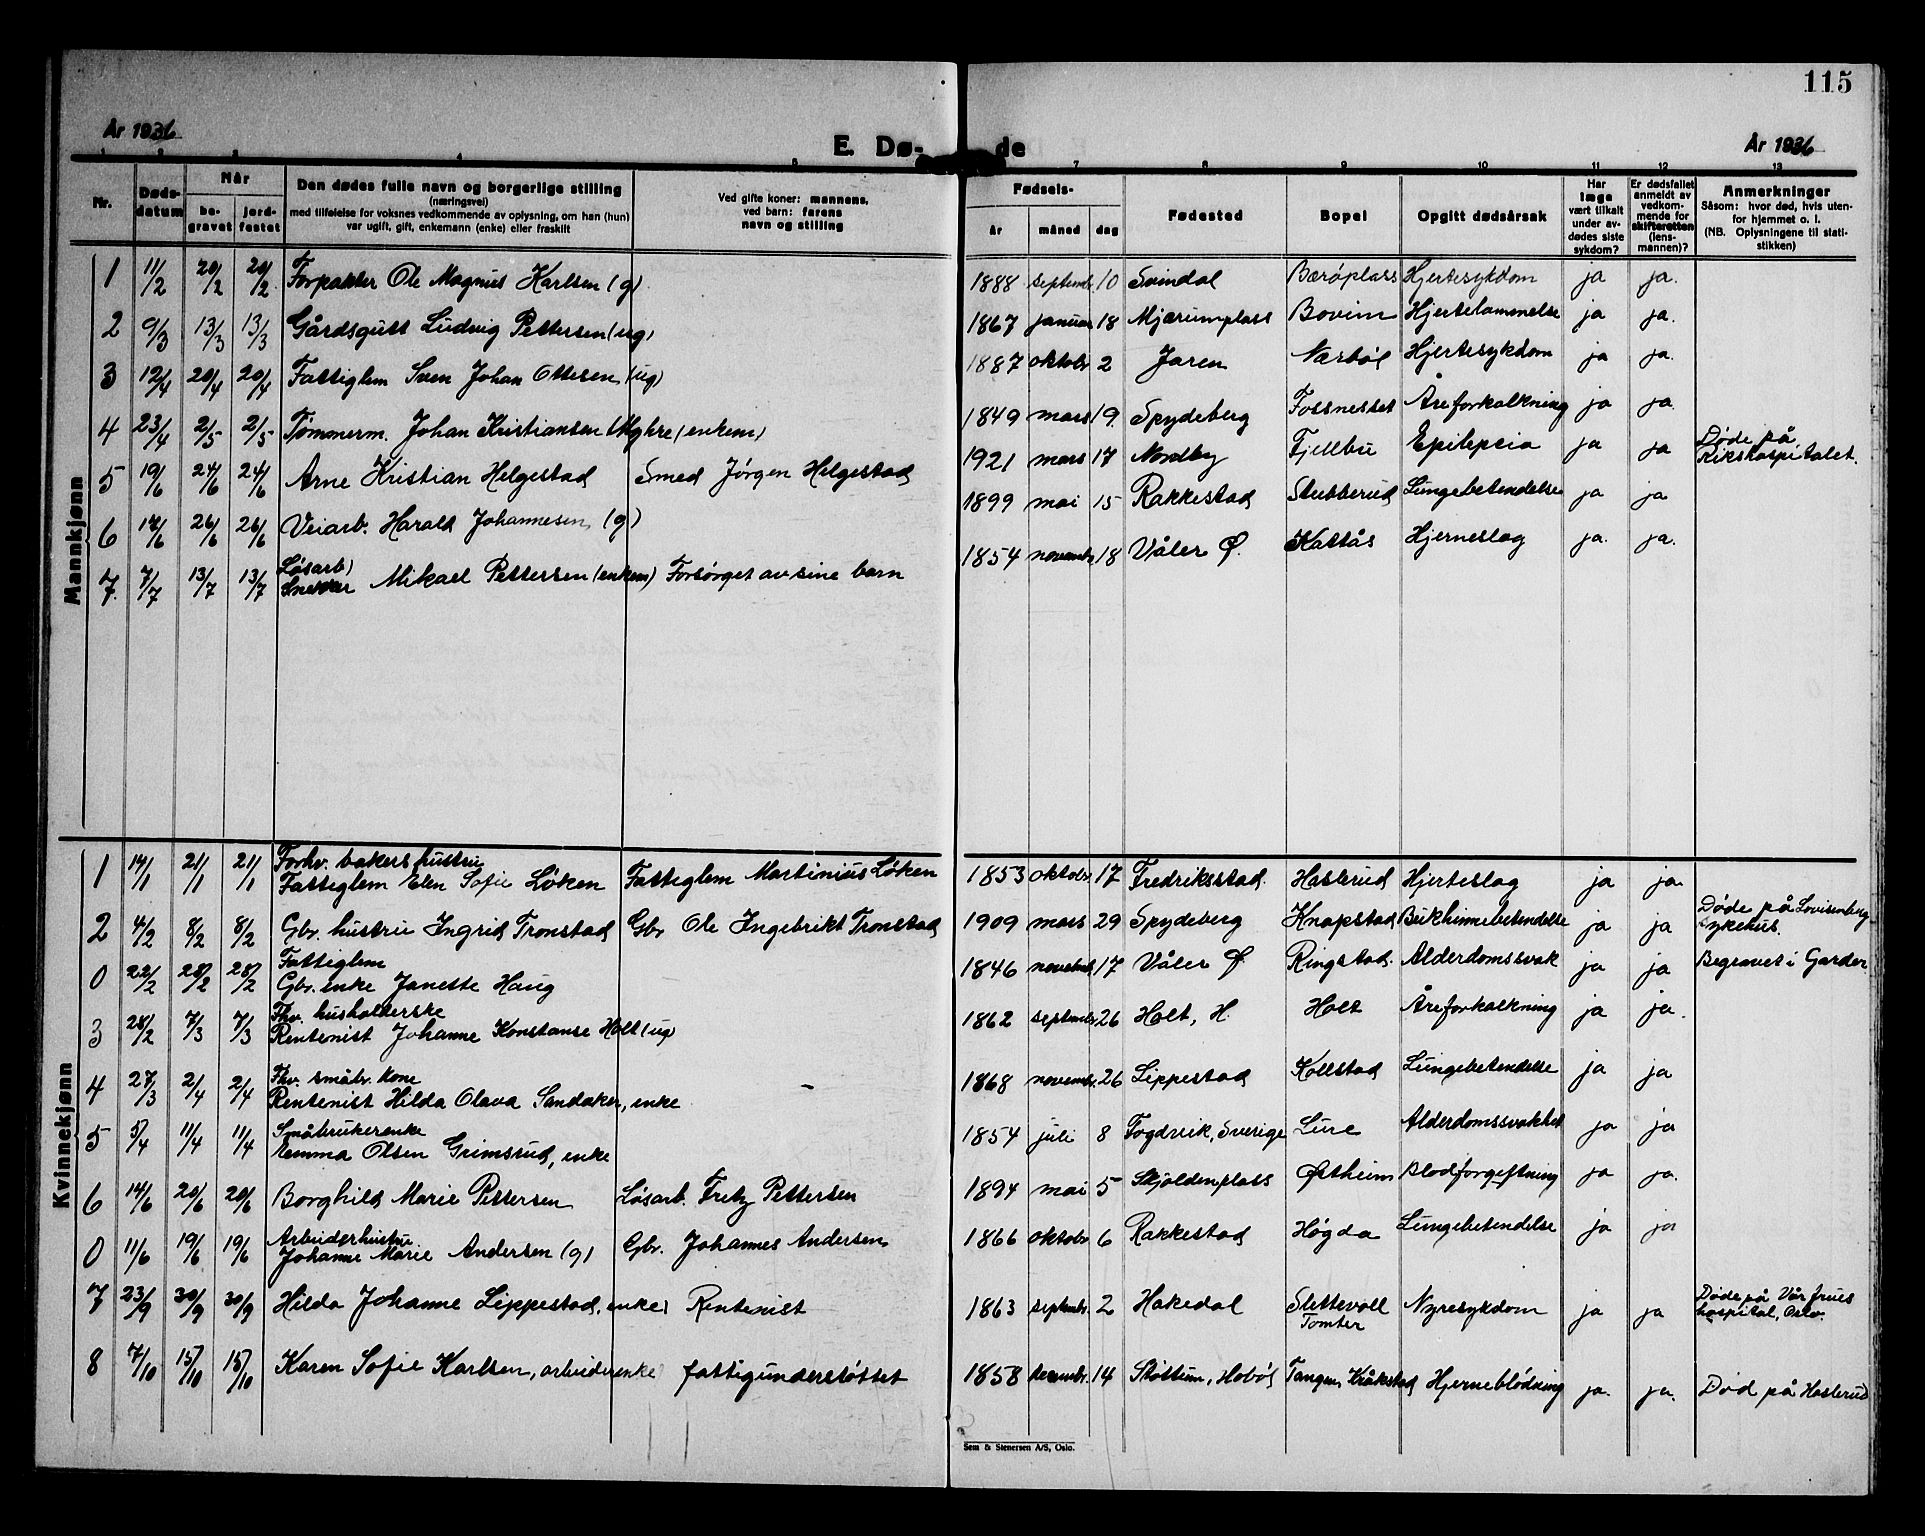 115
År 1936
E. Dø-
de
År 1936
1 2 3 4 5 7 8 9 10 11 12 13
Nr.
Døds-
datum
Når
be-
gravet
jord-
festet
Den dødes fulle navn og borgerlige stilling
(næringsvei)
med tilføielse for voksnes vedkommende av oplysning, om han (hun)
var ugift, gift, enkemann (enke) eller fraskilt
Ved gifte koner: mannens,
ved barn: farens
navn og stilling
Fødsels-
år
måned
dag
Fødested
Bopel
Opgitt dødsårsak
Har
læge
vært tilkalt
under av-
dødes siste
sykdom?
Er dødsfallet
anmeldt av
vedkom-
mende for
skifteretten
(lens-
mannen)?
Anmerkninger
Såsom: hvor død, hvis uten-
for hjemmet o. l.
(NB. Oplysningene til stati-
stikken)
Mannkjønn
1 11/2 20/2 20/2 Forpakter Ole Magnus Karlsen (g) 1888 septembr. 10 Svindal Bærøplass Hjertesykdom ja ja.
2 9/3 13/3 13/3 Gårdsgutt Ludvig Pettersen (ug) 1867 januar 18 Mjærumplass Bovim Hjertelammelse ja ja.
3 12/4 20/4 20/4 Fattiglem Sven Johan Ottesen (ug) 1887 oktobr 2 Jaren Nærbøl Hjertesykdom ja ja.
4 23/4 2/5 2/5 Tømmerm. Johan Kristiansen Myhre (enkem) 1849 mars 19. Spydeberg Fossnesset Åreforkalkning ja ja.
5 19/6 24/6 24/6 Arne Kristian Helgestad Smed Jørgen Helgestad 1921 mars 17 Nordby Fjellbu Epilepsia ja ja Døde på
Rikshospitalet.
6 17/6 26/6 26/6 Veiarb. Harald Johannesen (g) 1899 mai 15 Rakkestad Stubberud Lungebetendelse ja ja
Løsarb)
7. 7/7 13/7 13/7 Snekker Mikael Pettersen (enkem) Forsørget av sine barn 1854 novembr 18 Våler Ø. Kattås Hjerneslag ja. ja.
Kvinnekjønn
Forhv. bakers hustru
1 14/1 21/1 21/1 Fattiglem Elen Sofie Løken Fattiglem Martinius Løken 1853 oktobr. 17 Fredriksstad. Haslerud Hjerteslag ja ja.
2 4/2 8/2 8/2 Gbr. hustru Ingrid Tronstad Gbr Ole Ingebrikt Tronstad 1909 mars 29 Spydeberg Knapstad Bukhinnebetendelse ja ja Døde på Lovisenberg
sykehus.
Fattiglem
0 22/2 28/2 28/2 Gbr. enke Janette Haug 1846 novembr. 17 Våler Ø Ringstad. Alderdomssvak ja ja Begravet i Garder
Fhv. husholderske
3 28/2 7/3 7/3 Rentenist Johanne Konstanse Holt (ug) 1862 septembr 26 Holt, H. Holt Åreforkalkning ja ja.
Fhv. småbr. kone
4 27/3 2/4 2/4 Rentenist Hilda Olava Sandaker, enke 1868 novembr. 26 Lippestad Kollstad Lungebetendelse ja ja
Småbrukerenke
5 5/4 11/4 11/4 Emma Olsen Grimsrud, enke 1854 juli 8 Fogdvik, Sverige Lure Alderdomssvakhet ja ja
6 14/6 20/6 20/6 Borghild Marie Pettersen Løsarb. Fretz Pettersen 1894 mai 5 Skjoldenplass Østheim Blodforgeftning ja ja.
Arbeiderhustru
0 11/6 19/6 19/6 Johanne Marie Andersen (g) Gbr. Johannes Andersen 1866 oktobr 6 Rakkestad Høgda Lungebetendelse ja ja
7 23/9 30/9 30/9 Hilda Johanne Lippestad, enke) Rentenist 1863 septembr. 2 Hakedal Slettevoll
Tomter Nyresykdom ja ja Døde på Vår frues
hospital, Oslo.
8 7/10 15/10 15/10 Karen Sofie Karlsen, arbeiderenke) fattigunderstøttet 1858 desembr. 14 Støttum, Hobøl Tangen, Kråkstad Hjerneblødning ja. ja. Død på Haslerud
Sem & Stenersen A/S, Oslo.